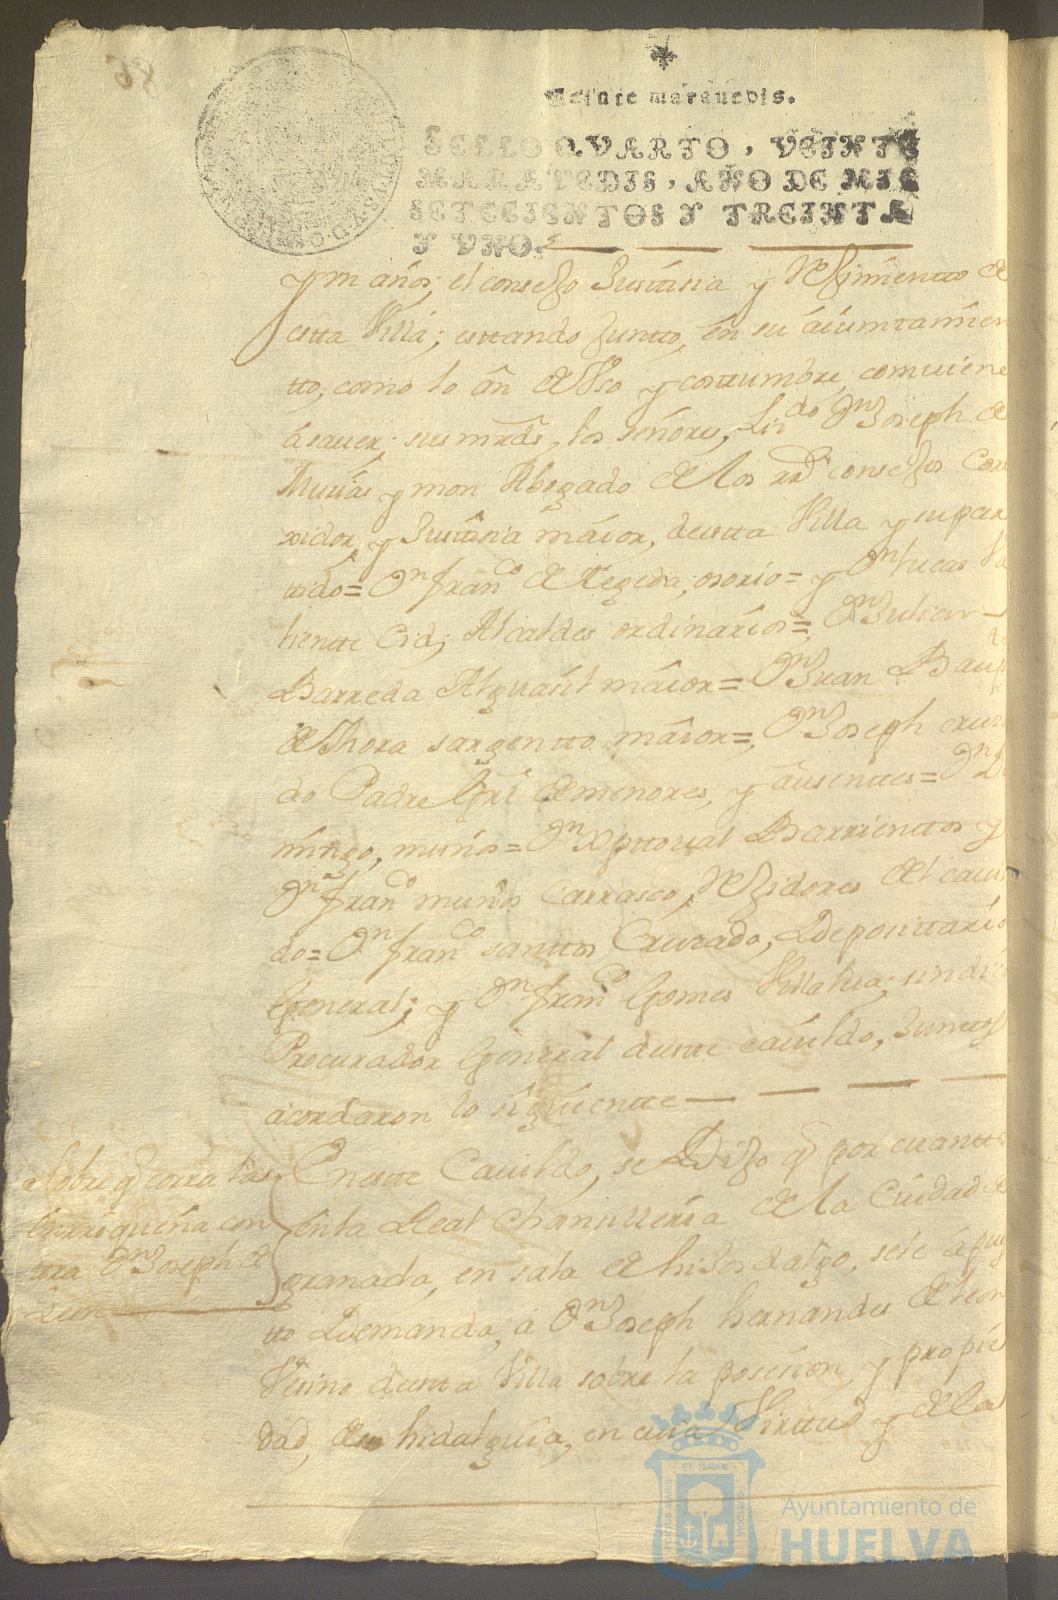 Veinte maravedis.
SELLO QVARTO, VEINTE
MARAVEDIS, AÑO DE MIL
SETECIENTOS Y TREINTA
Y VNO.
y un años, el consejo Justisia y Rejimientto de
estta Villa; esttando Juntto, en su aiuntamien
tto, como lo an de Vso y costtumbre, comuiene
asauer; sus mrds, los señores, Lizdo Dn Joseph de
y mon Abogado de los rrs consejos Corr
xidor, y Justisia maior, desta Villa y su par
ttido= Dn Franco de osorio= y Dn Lucas Va
liente Cid; Alcaldes ordinarios= Dn Julian
Barreda Alguasil maior= Dn Juan Baup
de Mora sargentto maior= Dn Joseph cruza
do Padre Gnrl de menores, y ausenttes= Dn Do
mingo, muñis= Dn Xpttoual Barrienttos y
Dn Franco muñis Carrasco, Rejidores del cauil
do= Dn Franco santtos Cruzado, Deposittario
General; y Dn Franco Gomes Villalua; sindico
Procurador General destte cauildo, Junttos
acordaron lo siguientte
Enestte Cauildo, se Dijo q por cuantto
enla Real Chansilleria de la Ciudad de
granada, en sala de hijosdalgo, se le a pues
tto Demanda, a Dn Joseph hernandes de leon
Vesino destta Villa sobre la posesion, y propie
dad, de su hidalguia, en cuia Virttud y de la
Sobre q corra las
enrriqueña con
ttra Dn Joseph de
Leon
Ayuntamiento de
HUELVA